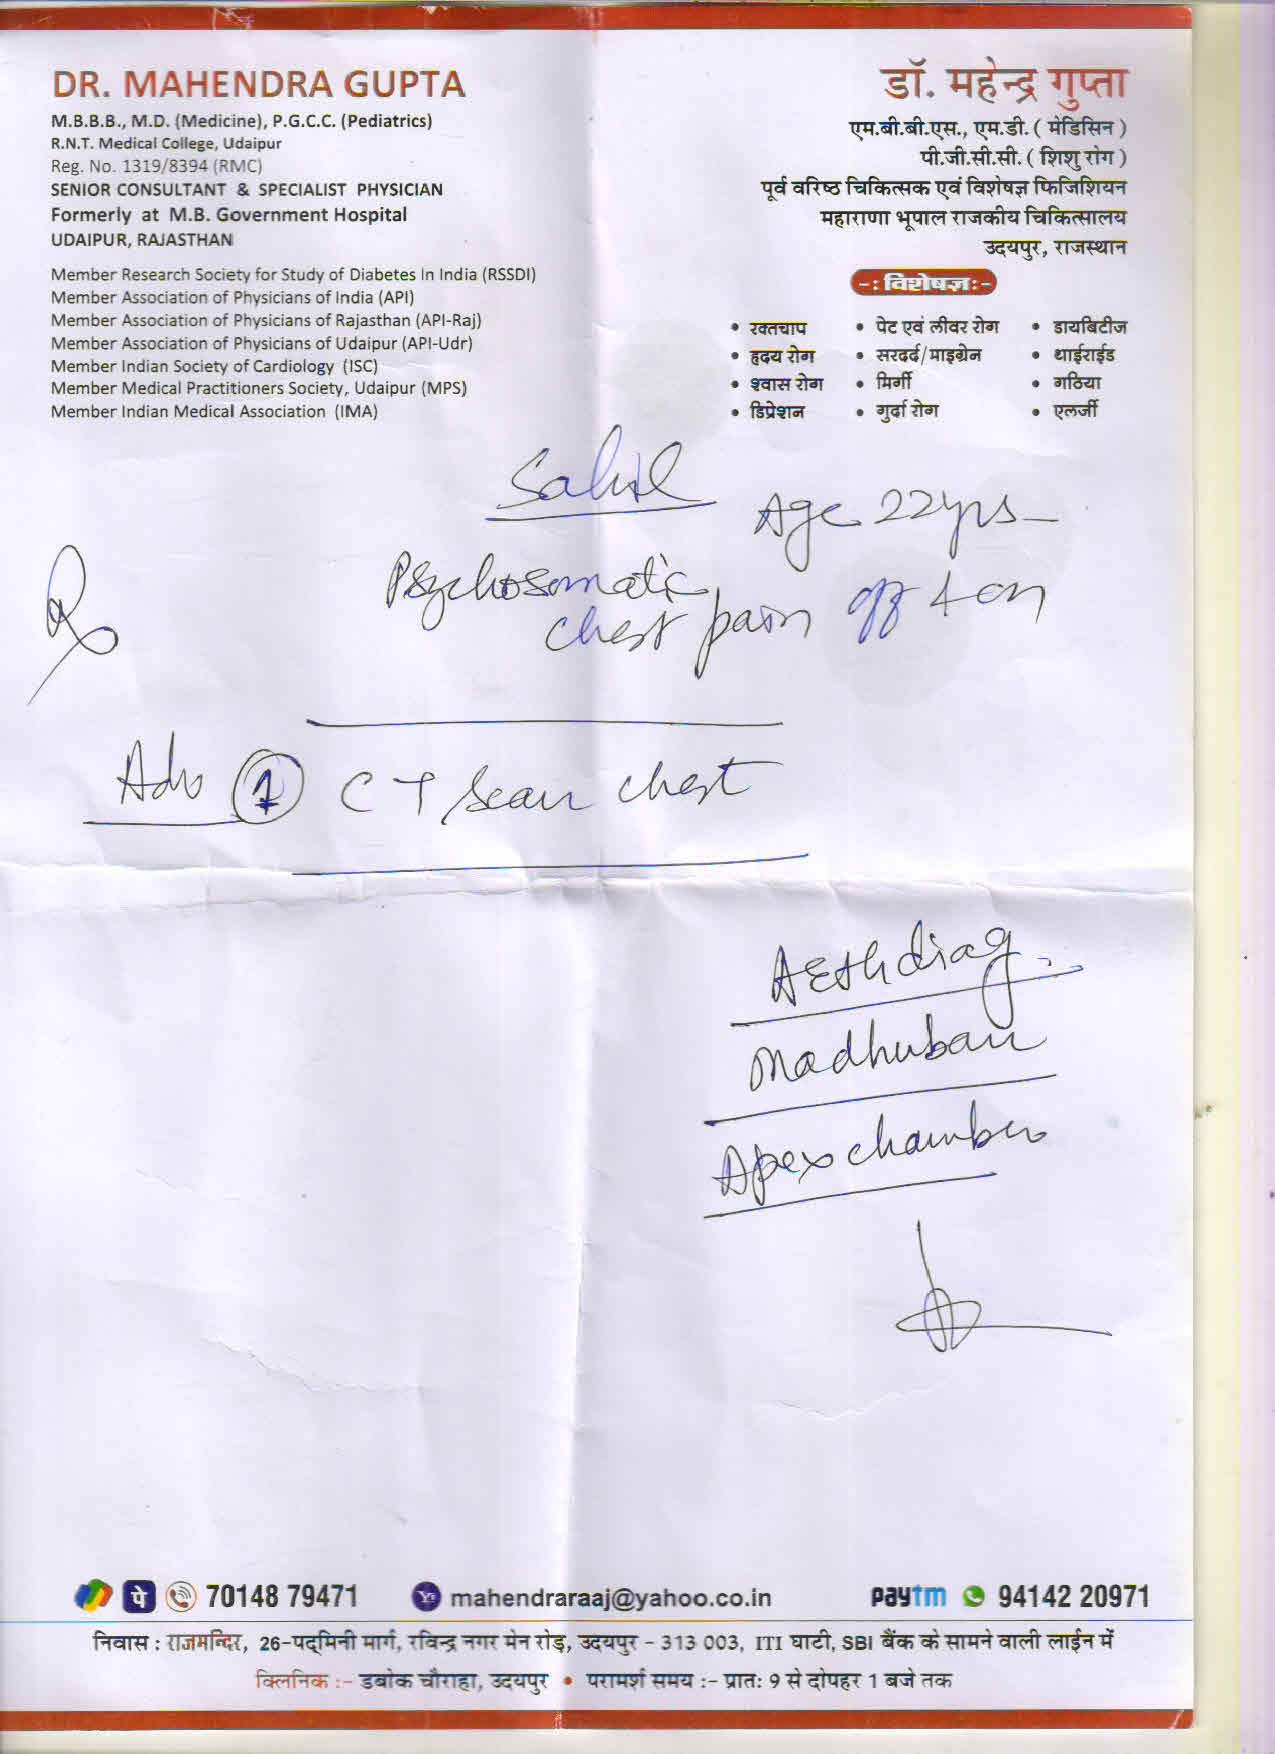 DR. MAHENDRA GUPTA
M.B.B.B., M.D. (Medicine), P.G.C.C. (Pediatrics)
R.N.T. Medical College, Udaipur
Reg. No. 1319/8394 (RMC)
SENIOR CONSULTANT & SPECIALIST PHYSICIAN
Formerly at M.B. Government Hospital
UDAIPUR, RAJASTHAN
Member Research Society for Study of Diabetes In India (RSSDI)
Member Association of Physicians of India (API)
Member Association of Physicians of Rajasthan (API-Raj)
Member Association of Physicians of Udaipur (API-Udr)
Member Indian Society of Cardiology (ISC)
Member Medical Practitioners Society, Udaipur (MPS)
Member Indian Medical Association (IMA)
डॉ. महेन्द्र गुप्ता
एम.बी.बी.एस., एम.डी. ( मेडिसिन )
पी.जी.सी.सी. ( शिशु रोग )
पूर्व वरिष्ठ चिकित्सक एवं विशेषज्ञ फिजिशियन
महाराणा भूपाल राजकीय चिकित्सालय
उदयपुर, राजस्थान
-: विशेषज्ञ:-
• रक्तचाप • पेट एवं लीवर रोग • डायबिटीज
• हृदय रोग • सरदर्द/माइग्रेन • थाईराईड
• श्वास रोग • मिर्गी • गठिया
• डिप्रेशन • गुर्दा रोग • एलर्जी
Sahil Age 22yrs
Rx Psychosomatic
chest pain off + on
Adv 1 CT Scan chest
Madhuban
Apex chamber
पे 70148 79471 mahendraraaj@yahoo.co.in paytm 94142 20971
निवास : राजमन्दिर, 26-पद्मिनी मार्ग, रविन्द्र नगर मेन रोड़, उदयपुर - 313 003, ITI घाटी, SBI बैंक के सामने वाली लाईन में
क्लिनिक :- डबोक चौराहा, उदयपुर • परामर्श समय :- प्रातः 9 से दोपहर 1 बजे तक